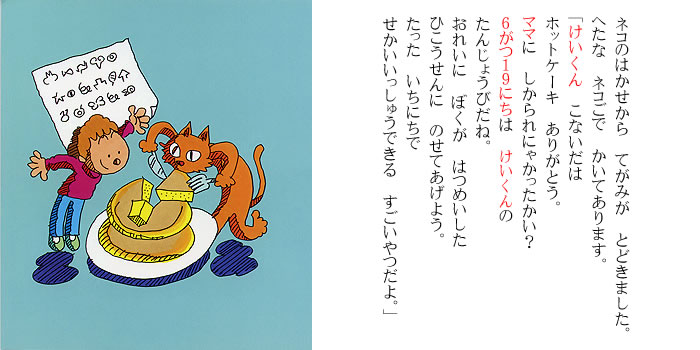 ネコのはかせから　てがみが　とどきました。
へたな　ネコごで　かいてあります。
「けいくん　こないだは
ホットケーキ　ありがとう。
ママに　しかられにゃかったかい？
6がつ19にちは　けいくんの
たんじょうびだね。
おれいに　ぼくが　はつめいした
ひこうせんに　のせてあげよう。
たった　いちにちで
せかいいっしゅうできる　すごいやつだよ。」